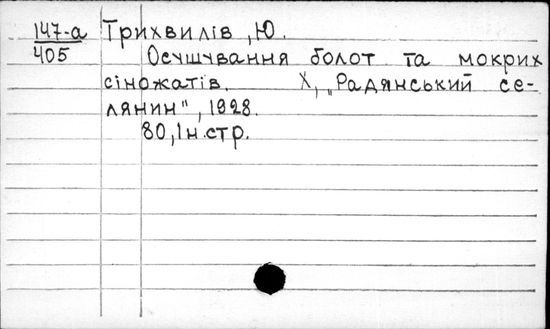 147-а Трихвилів, Ю.
405 Осушування болот та мокрих
сіножатів. Х, „Радянський се-
лянин", 1928.
80, 1 н. стр.